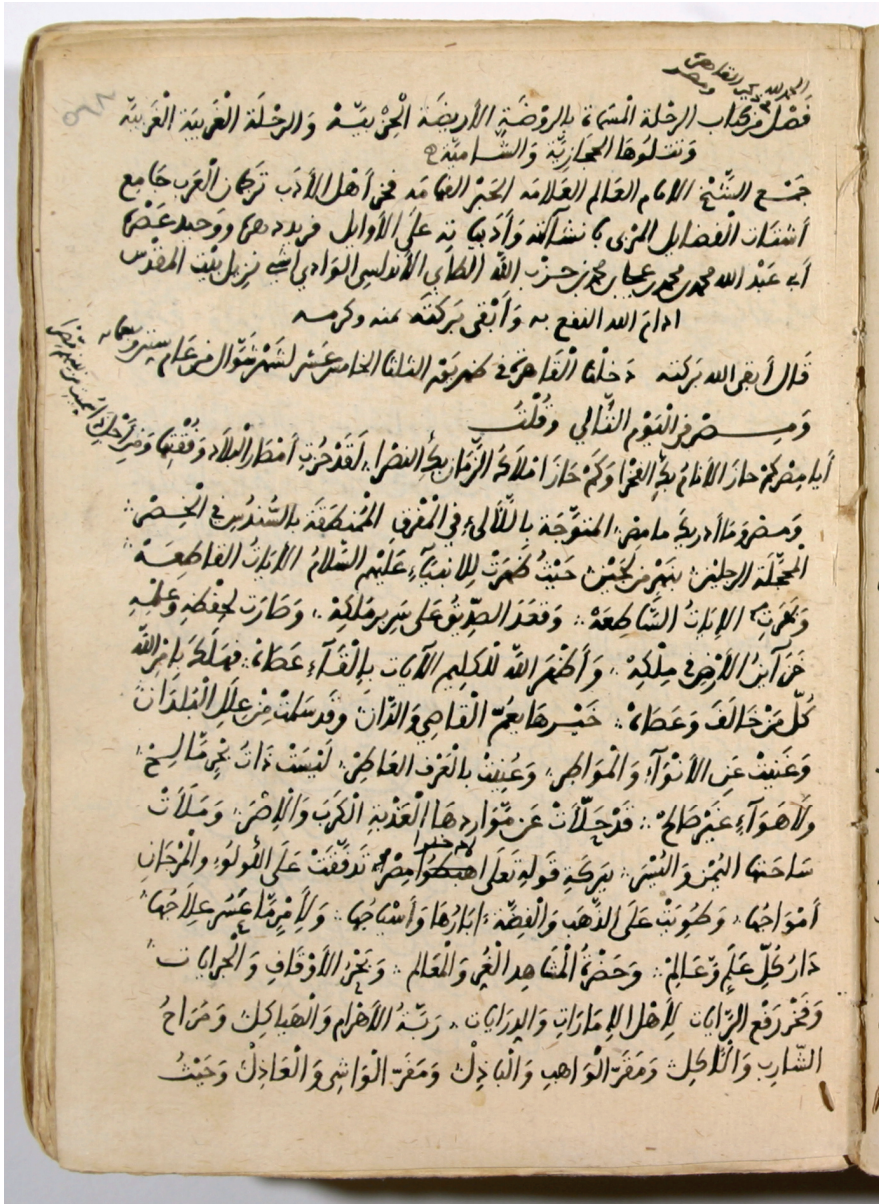 الحمد لله
فصْل من كتاب الرحلة المسماة بالروْضَةِ الأريضَة الْحِزْبيّة وَالرحْلَة الْغَرِيبَة الْغَرْبيّه
وَتتلُوهَا الحجَازِيَّة وَالشَّاميّة
جمْع الشّيْخ الامام العَالم العَلامَه الحَبْر الفهامَه فخر أهْل الأدَب ترجمان الْعَرب جَامِع
أشتَات الْفضَايل المزرى بإنشآئه وَأدَبيّاته علَى الأوايل فريد دهره ووَحيد عَصْره
أبي عَبْد الله محمد بن محمد بن محمد بن حزْب اللّه الطاي الأندلسى الوَادي اشى نزيل بيْت المقدس
ادامَ الله النفع به وَأبْقى بَركتَه بمنه وكرمه
قَال أبقى الله بَركته دَخلْنا الْقَاهرة فى ظهر يَوْم الثلثا الخامس عَشر لشهْر شوّال من عَام ستين وسبعمايه
وَمِصْر فى الْيَوْم الثّالي وَقُلْتُ
أيَا مِصْر كمْ حازَ الأنَامُ بكِ الفخْرا وَكمْ حَازَ املاكُ الزّمَان بكِ النصْرا لَقَدْ حُزتِ أمْصَار البلَاد
وَمصْر وَمَا أدريكَ ما مصْر المتوَّجَة باللّآلئ في المَفْرق الْمُنطَقَة بالسُّندُس فى الْخصْر
الْمحجّلَة الرجليْن بنهْر من لجَيْن حَيْثُ ظهَرَتْ لِلانبيَآءِ عَليْهم السّلامُ الآيَاتُ القَاطِعَة
الآيَاتُ السَّاطِعَه وَقعَدَ الصّدِيقُ عَلى سَرير مَلكِه وَصَارَت لحفْظِه وَعلمْه
خزَآينُ الأرْض في مِلْكِه وَأظهَر اللّه للكَليم الآيَات بإلقَآءِ عَصَاهُ فهَلكَ بأمْر اللّه
كُلّ مَنْ خَالَفَ وَعَصَاهُ خَيْرهَا يعُمّ الْقَاصِي وَالدّان وقَد سَلمَتْ مِنْ عِلَل الْبُلدَان
وَغَنيَتْ عَنِ الأنْوَآءِ وَالْمَوَاطِر وَعُنيَتْ بالعَرْف العَاطِرْ لَيْسَتْ ذَاتَ بحْر مَالِحْ
ولاَ هَوَآءٍ غَيْر صَالحْ قَدْ جَلَّأتْ عَن مّوَاردهَا الْعَذْبَة الْكَرَبَ وَالْإصْرَ وَمَلَأتْ
سَاحَتهَا اليُمْنَ وَاليُسْرَ ببَركَةِ قَولهِ تعَلى ادخلوا مِصْر تَدفّقَتْ عَلَى اللّولُوءِ والْمرْجَانِ
أمْوَاجُهَا وَطُويَتْ عَلَى الذّهَب وَالْفِضَّة ابَارُهَا وَأسْبَاجُهَا وَلأمْرٍ مّا عَسُر عِلاَجُهَا
دَارُ كُلِّ عَلَمٍ وّعَالِمْ وَحَضْرَةُ الْمشَاهِدِ الْغُر وَالْمعَالم وَبَحْرُ الأوْقَافِ وَالْجرايَات
وَفَخْرُ رَفْع الرَّايَات لِأهْل الإمَارَاتِ وَالدرَايَات رَبَّةُ الأهْرَام وَالْهَيَاكِل وَمَرَاحُ
الشّارِب وَالْآكِلْ وَمَقَرّ الْوَاهِب وَالْبَاذِلْ وَمَفَرّ الْوَاشِى وَالْعَاذِلْ وَحَيْثُ